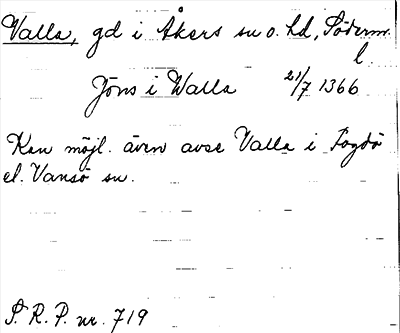 Valla, gd i Åkers sn o. hd, Söderm.
l.
Jöns i Walla 21/7 1366
Kan möjl. även avse Valla i Fogdö
el. Vansö sn.
S. R. P. nr. 719